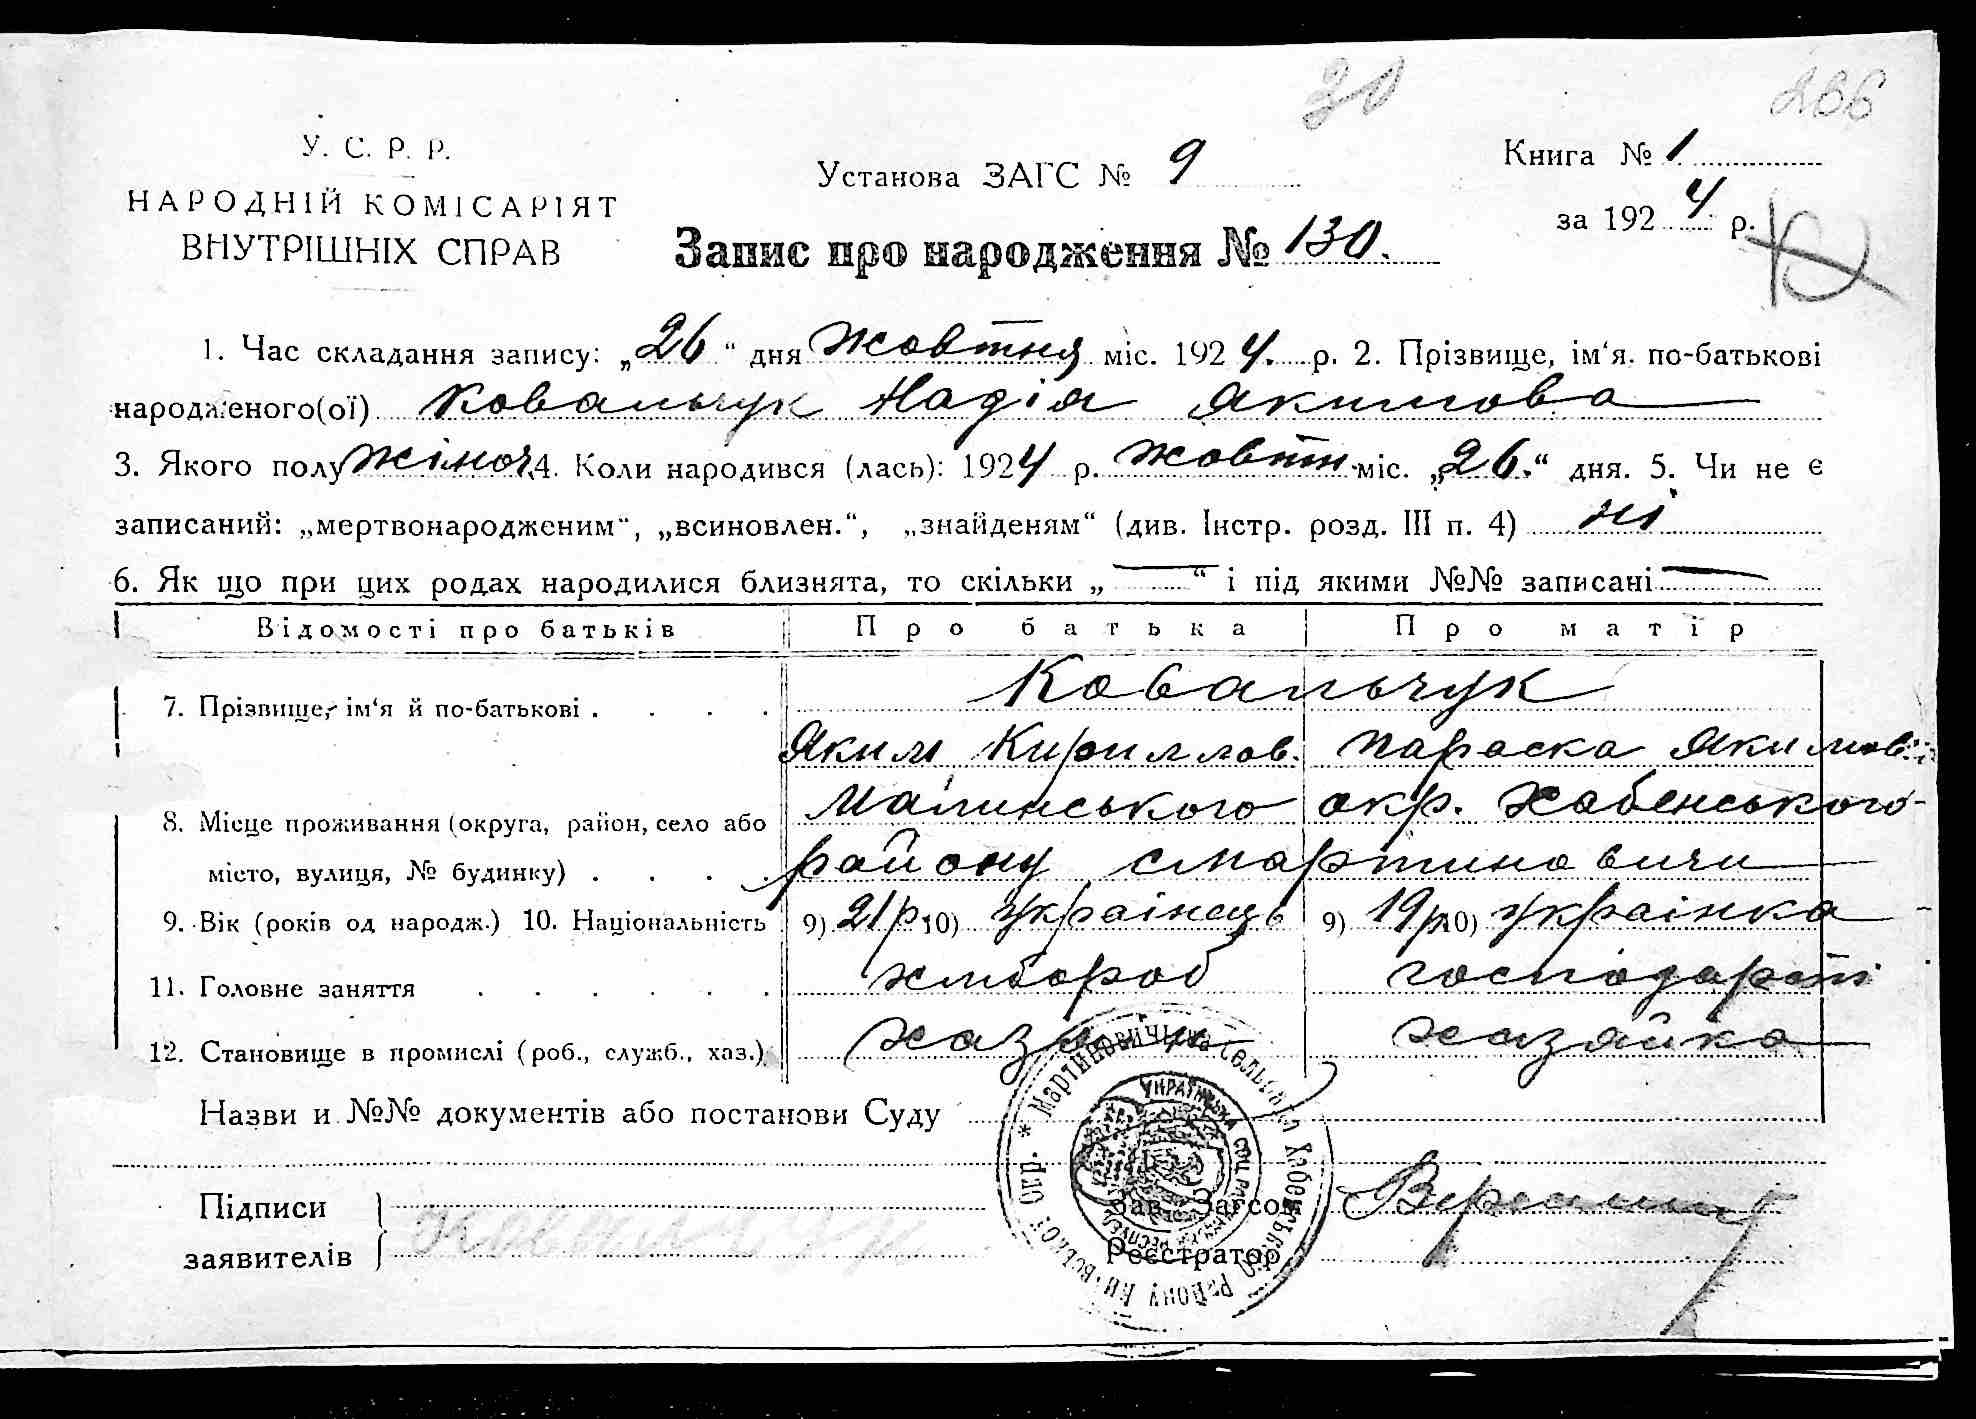 30
266
У. С. Р. Р.
НАРОДНІЙ КОМІСАРІЯТ
ВНУТРІШНІХ СПРАВ
Установа ЗАГС № 9
Книга № 1
за 1924 р.
Запис про народження № 130.
1. Час складання запису: „26“ дня Жовтня міс. 1924. р. 2. Прізвище, ім‘я. по-батькові
народженого(ої) Ковальчук Надія Якимова
3. Якого полу жіноч. 4. Коли народився (лась): 1924 р. жовтн. міс. „26.“ дня. 5. Чи не є
записаний: „мертвонародженим“, „всиновлен.“, „знайденям“ (див. Інстр. розд. III п. 4) ні
6. Як що при цих родах народилися близнята, то скільки „—“ і під якими №№ записані —
Відомості про батьків Про батька Про матір
7. Прізвище, ім‘я й по-батькові . . . . Ковальчук
Яким Кириллов. Параска Якимов.
8. Місце проживання (округа, район, село або Малинського окр. Хабенського
місто, вулиця, № будинку) . . . . району с Мартиновичи
9. Вік (років од народж.) 10. Національність 9) 21 р. 10) українець 9) 19 р. 10) українка
11. Головне заняття . . . . . . хлібороб господарст
12. Становище в промислі (роб., служб., хаз.) хазяїн хазяйка
Назви и №№ документів або постанови Суду
Підписи
заявителів
Ковальчук
Зав. Загсом
Реєстратор
* Мартиновичська сельська Хабенського Району Київської Окр.
УКРАЇНСЬКА СОЦ. РАДЯНСЬКА РЕСПУБЛІКА